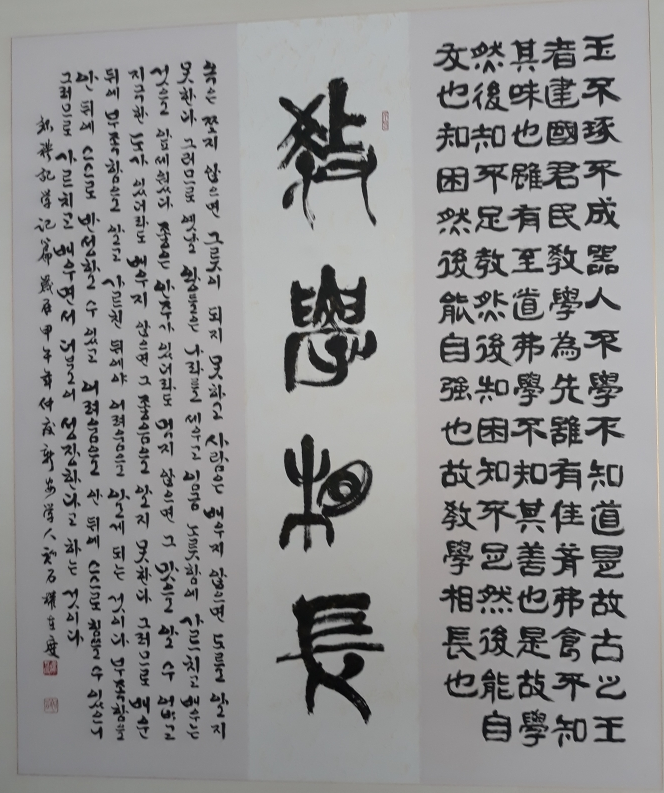 玉不琢不成器人不學不知道是故古之王
者建國君民敎學為先雖有佳肴弗食不知
其味也雖有至道弗學不知其善也是故學
然後知不足敎然後知困知不足然後能自
反也知困然後能自强也故敎學相長也
敎學相長
옥은 쪼지 않으면 그릇이 되지 못하고 사람은 배우지 않으면 도를 알지
못한다 그러므로 옛날 왕들은 나라를 세우고 임금 노릇함에 가르치고 배우는
것을 앞세웠다 좋은 안주가 있더라도 먹지 않으면 그 맛을 알 수 없고
지극한 도가 있더라도 배우지 않으면 그 좋음을 알지 못한다 그러므로 배운
뒤에 부족함을 알고 가르친 뒤에야 어려움을 알게 되는 것이다 부족함을
안 뒤에 스스로 반성할 수 있고 어려움을 안 뒤에 스스로 힘쓸 수 있으니
그러므로 가르치고 배우면서 더불어 성장한다고 하는 것이다
禮記学記篇 歲在甲午年仲夏 学人 石 權在度